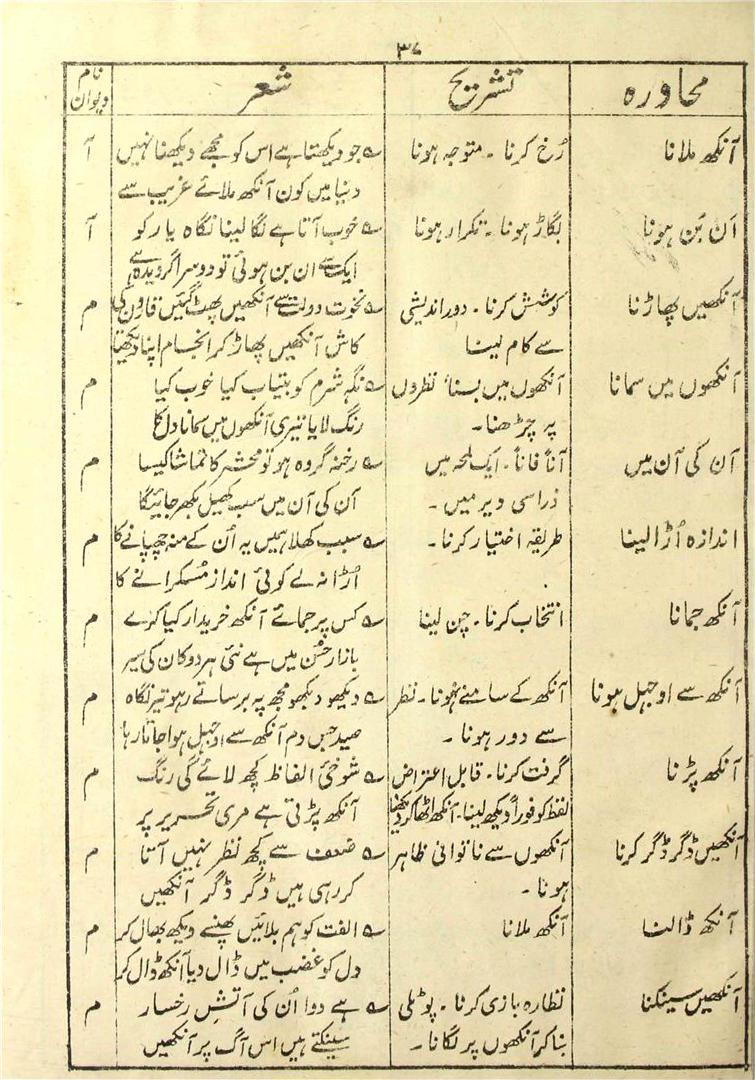 ۳۷
محاورہ تشریح شعر نام دیوان
آنکھ ملانا رُخ کرنا ۔ متوجہ ہونا ؎ جو دیکھتا ہے اس کو مجھے دیکھنا نہیں آ
دنیا میں کون آنکھ ملائے غریب سے
اَن بَن ہونا بگاڑ ہونا ۔ تکرار ہونا ؎ خوب آتا ہے لگا لینا نگاہ یار کو آ
ایک سے ان بن ہوئی تو دوسرا گرویدہ ہے
آنکھیں پھاڑنا کوشش کرنا ۔ دور اندیشی ؎ نخوت دولت سے آنکھیں پھٹ گئیں قارون کی م
سے کام لینا کاش آنکھیں پھاڑ کر انجام اپنا دیکھتا
آنکھوں میں سمانا آنکھوں میں بسنا نظروں ؎ نگہ شرم کو بیتاب کیا خوب کیا م
پہ چڑھنا۔ رنگ لایا تیری آنکھوں میں سمانا دل کا
آن کی آن میں آناً فاناً ۔ ایک لمحہ میں ؎ رخنہ گر وہ ہو تو محشر کا تماشا کیسا م
ذراسی دیر میں ۔ آن کی آن میں سب کھیل بکھر جائیگا
اندازہ اُڑا لینا طریقہ اختیار کرنا ۔ ؎ سبب کھلا ہمیں یہ اُن کے منہ چھپانے کا م
اُڑا نہ لے کوئی انداز مُسکرانے کا
آنکھ جمانا انتخاب کرنا ۔ چن لینا ؎ کس پر جمائے آنکھ خریدار کیا کرے م
بازار حُسن میں ہے نئی ہر دوکان کی سیر
آنکھ سے اوجھل ہونا آنکھ کے سامنے ہونا ۔ نظر ؎ دیکھو دیکھو مجھ پہ برساتے رہو تیر نگاہ م
سے دور ہونا ۔ صید جس دم آنکھ سے اوجھل ہوا جاتا رہا
آنکھ پڑنا گرفت کرنا ۔ قابل اعتراض ؎ شوخیٔ الفاظ کچھ لائے گی رنگ م
لفظ کو فوراً دیکھ لینا ۔ آنکھ اٹھا کر دیکھنا آنکھ پڑتی ہے مری تحریر پر
آنکھیں ڈگر ڈگر کرنا آنکھوں سے ناتوانی ظاہر ؎ ضعف سے کچھ نظر نہیں آتا م
ہونا ۔ کر رہی ہیں ڈگر ڈگر آنکھیں
آنکھ ڈالنا آنکھ ملانا ؎ الفت کو ہم بلائیں پھنسے دیکھ بھال کر م
دل کو غضب میں ڈال دیا آنکھ ڈال کر
آنکھیں سینکنا نظارہ بازی کرنا ۔ پوٹلی ؎ ہے دوا اُن کی آتشِ رخسار م
بنا کر آنکھوں پر لگانا ۔ سینکتے ہیں اس آگ پر آنکھیں